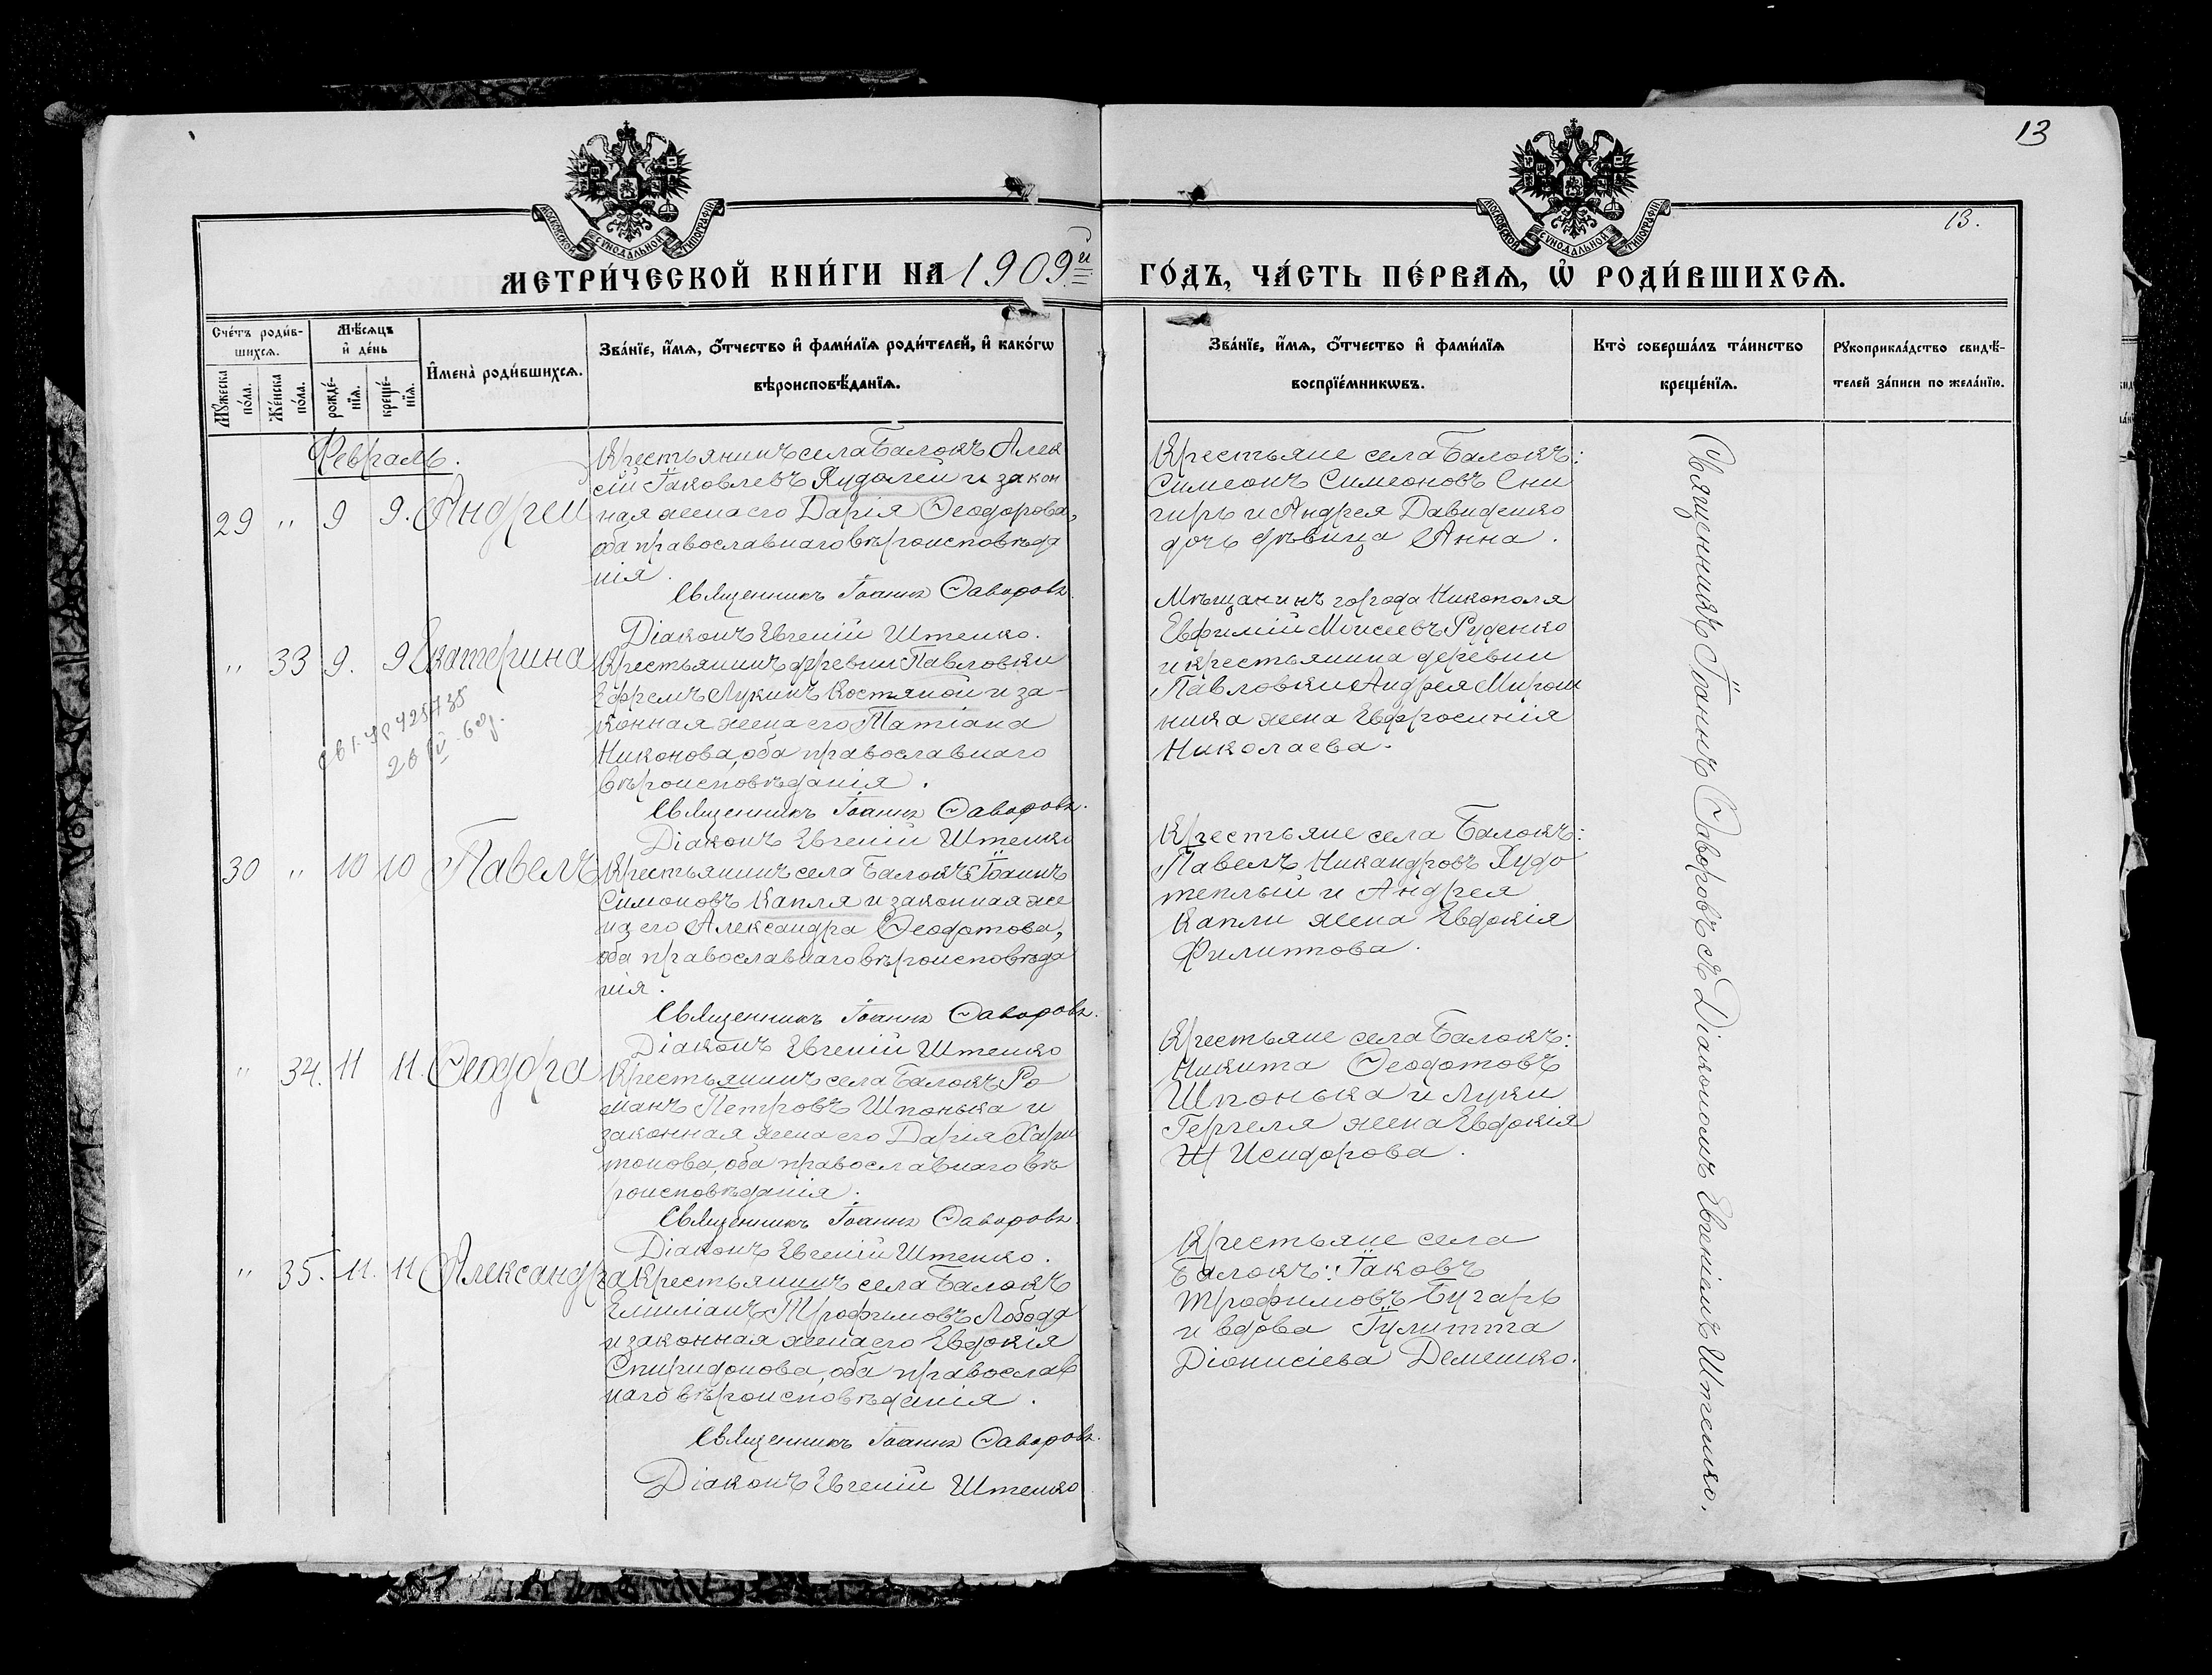 13
13.
МОСКОВСКОЙ СѴНОДАЛЬНОЙ ТИПОГРАФІИ
МОСКОВСКОЙ СѴНОДАЛЬНОЙ ТИПОГРАФІИ
МЕТРИ́ЧЕСКОЙ КНИ́ГИ НА 1909й
ГО́ДЪ, ЧА́СТЬ ПЕ́РВАѦ, Ѡ҆ РОДИ́ВШИХСѦ.
Сче́тъ роди́в-
шихсѧ.
Мꙋ́жеска
по́ла.
Же́нска
по́ла.
Мѣ́сѧцъ
и҆ де́нь
рожде́-
нїѧ.
креще́-
нїѧ.
И҆мена̀ роди́вшихсѧ.
Зва́нїе, и҆́мѧ, ѻ҆́тчество и҆ фами́лїѧ роди́телей, и҆ како́гѡ
вѣроисповѣ́данїѧ.
Зва́нїе, и҆́мѧ, ѻ҆́тчество и҆ фами́лїѧ
воспрїе́мникѡвъ.
Кто̀ соверша́лъ та́инство
креще́нїѧ.
Рꙋкоприкла́дство свидѣ́-
телей за́писи по жела́нїю.
Февраль.
29 " 9 9. Андрей
Крестьянинъ села Балокъ Алек
сѣй Іаковлевъ Худолей и закон
ная жена его Дарія Ѳеодорова,
оба православнаго вѣроисповѣда
нія.
Священникъ Іоаннъ Ѳаворовъ.
Діаконъ Евгеній Штенко.
Крестьяне села Балокъ:
Симеонъ Симеоновъ Сни
гирь и Андрея Давиденко
дочь дѣвица Анна.
" 33 9. 9 Екатерина
Крестьянинъ деревни Павловки
Ефремъ Лукинъ Костяной и за-
конная жена его Татіана
Никонова, оба православнаго
вѣроисповѣданія.
Священникъ Іоаннъ Ѳаворовъ.
Діаконъ Евгеній Штенко
Мѣщанинъ города Никополя
Евфимій Моисеевъ Руденко
и крестьянина деревни
Павловки Андрея Мирош
ника жена Евфросинія
Николаева.
30 " 10 10 Павелъ
Крестьянинъ села Балокъ Іоаннъ
Симоновъ Капля и законная же
на его Александра Ѳеодотова,
оба православнаго вѣроисповѣда
нія.
Священникъ Іоаннъ Ѳаворовъ.
Діаконъ Евгеній Штенко
Крестьяне села Балокъ:
Павелъ Никандровъ Худо
теплый и Андрея
Капли жена Евдокія
Филиппова.
" 34. 11 11. Ѳеодора
Крестьянинъ села Балокъ Ро
манъ Петровъ Шпонька и
законная жена его Дарія Хари
тонова, оба православнаго вѣ
роисповѣданія.
Священникъ Іоаннъ Ѳаворовъ.
Діаконъ Евгеній Штенко.
Крестьяне села Балокъ:
Никита Ѳеодотовъ
Шпонька и Луки
Гергеля жена Евдокія
Исидорова.
" 35. 11. 11 Александра
Крестьянинъ села Балокъ
Емиліанъ Трофимовъ Лобода
и законная жена его Евдокія
Спиридонова, оба православ
наго вѣроисповѣданія.
Священникъ Іоаннъ Ѳаворовъ.
Діаконъ Евгеній Штенко
Крестьяне села
Балокъ: Іаковъ
Трофимовъ Бугарь
и вдова Іулитта
Діонисіева Демешко.
Священникъ Іоаннъ Ѳаворовъ съ Діакономъ Евгеніемъ Штенко.